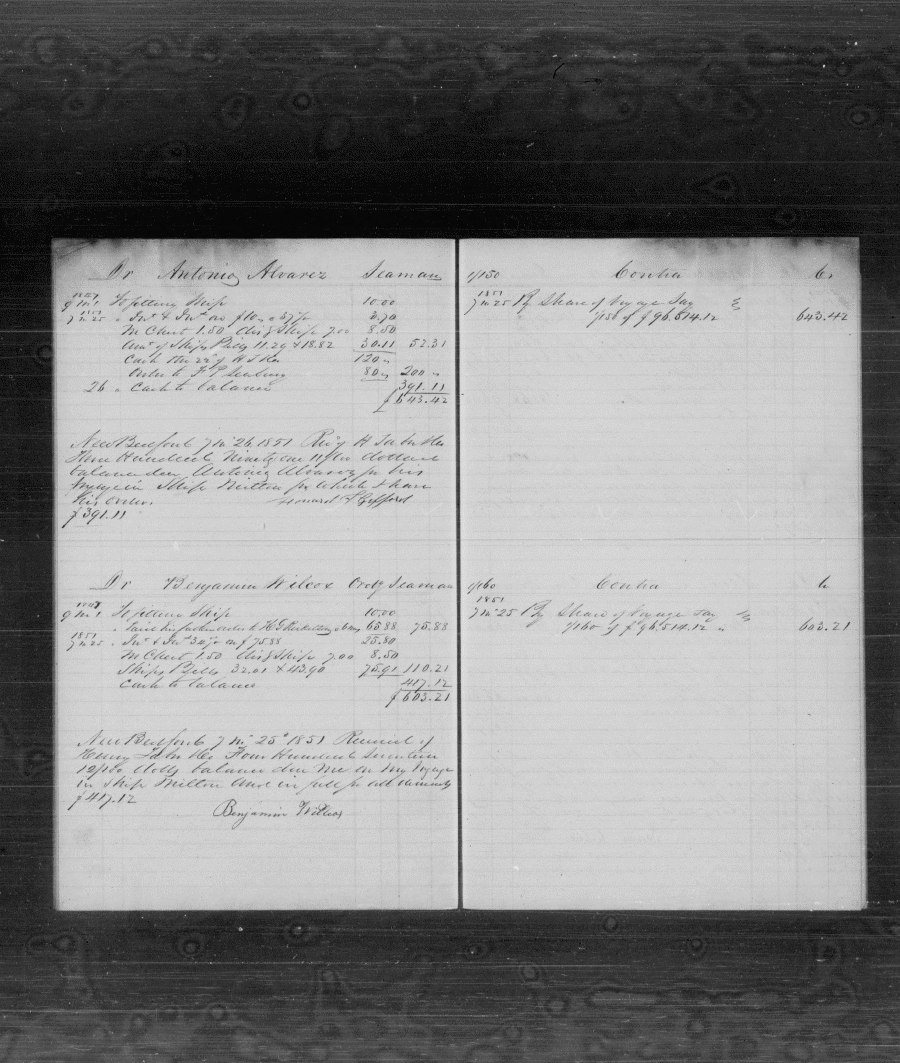 Dr Antonio Alvarez Seaman
9 mo 1 To fitting Ship 10.00
1851
7 mo 25 " Int & Ins on $10 a 37 pc 3.70
M Chest 1.50 Disg Ship 7.00 8.50
Amt of Ships Bills 11.29 & 18.82 30.11 52.31
Cash 120 "
Order to 80 " 200 "
26 " Cash to balance 391.11
$643.42
New Bedford 7 mo 26 1851 Rec'd of H Taber & Co
Three Hundred Ninety one 11/100 dollars
balance due Antonio Alvarez for his
Voyage in Ship Milton for which I have
his order.
$391.11
Dr Benjamin Wilcox Ordy Seaman
9 mo 1 To fitting Ship 10.00
" Paid 65.88 75.88
1851
7 mo 25 " Int & Ins 34 pc on $75.88 25.80
M Chest 1.50 Disg Ship 7.00 8.50
Ships Bills 32.01 & 43.90 75.91 110.21
Cash to balance 417.12
$603.21
New Bedford 7 mo 25 1851 Received of
Henry Taber & Co Four Hundred Seventeen
12/100 dolls balance due me on my Voyage
in Ship Milton and in full for all demands
$417.12
Benjamin Wilcox
1/150 Contra Cr
1851
7 mo 25 By Share of Voyage Say
1/150 of $96.514.12 643.42
1/160 Contra Cr
1851
7 mo 25 By Share of Voyage Say
1/160 of $96.514.12 " 603.21